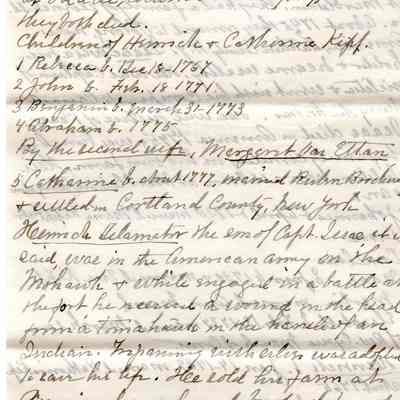 they both died.
Children of Henrich & Catherine Kipp.
1 Rebecca b. Dec 18-1767
2 John b. Feb. 18 1771.
3 Benjamin b. March 31-1773
4 Abraham b. 1775
By the second wife, Margeret Van Ettan
5 Catharine b. about 1777, married
& settled in Cortland County, New York
Henrich Delameter the son of Capt. Isaac it is
said, was in the American army on the
Mohawk & while engaged in a battle at
the fort he received a wound in the head
from a tomahawk in the hands of an
Indian. Trepanning with silver was adopted
to save his life. He sold his farm at